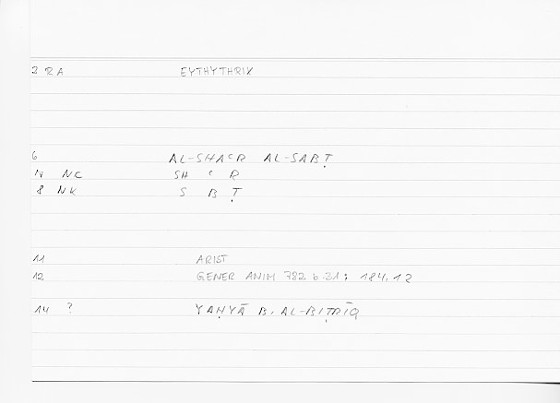 2 RA EYTHYTHRIX
6 AL-SHAʿR AL-SABṬ
N NC SH ʿ R
8 NK S B Ṭ
11 ARIST
12 GENER ANIM 782 b 31; 184.12
14 ? YAḤYĀ B. AL-BIṬRĪQ